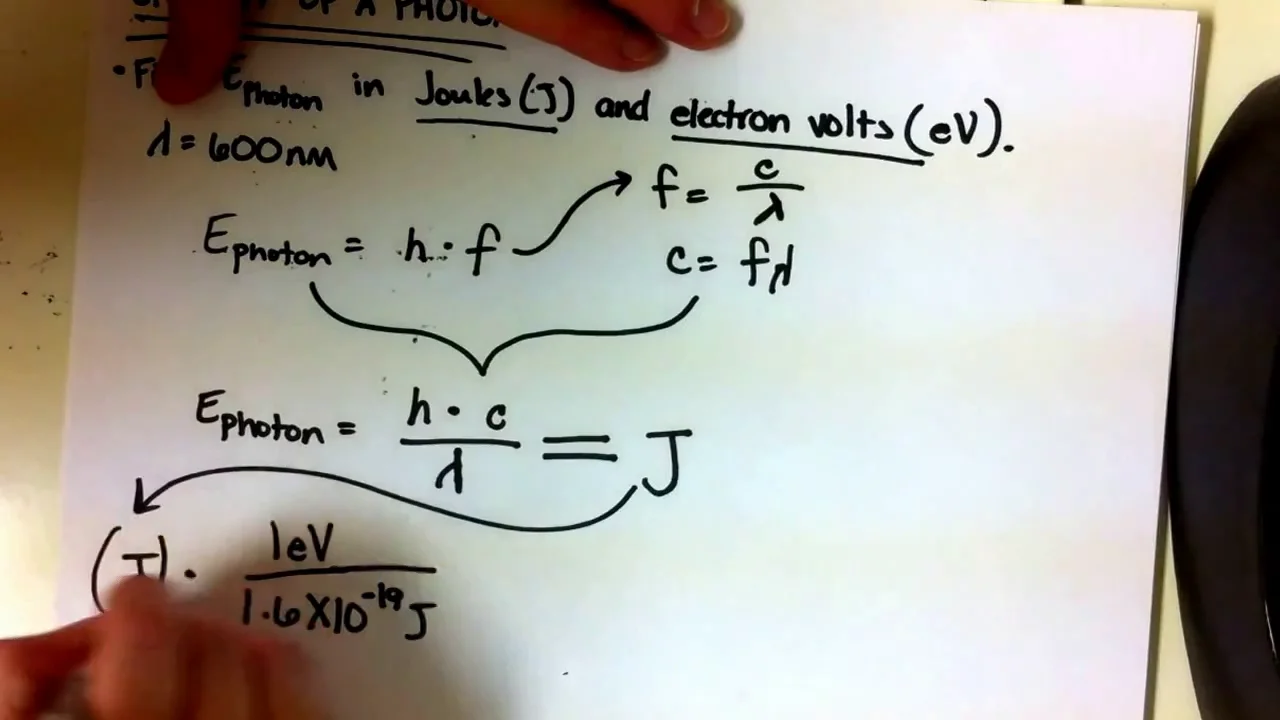 OF A PHOTO
E photon in Joules (J) and electron volts (eV).
λ = 600nm
E photon = h · f
f = c/λ
c = fλ
E photon = h · c / λ = J
(J) · 1eV / 1.6X10^-19 J